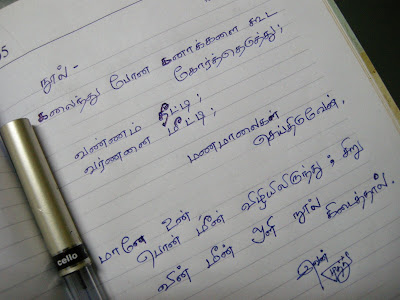 35
நூல் -
கலைந்து போன கனாக்களை கூட
கோர்த்தெடுத்து;
வண்ணம் தீட்டி;
வர்ணனை மீட்டி;
மணமாலைகள்
செய்திடுவேன்,
மானே உன்
பொன் மீன் விழியிலிருந்து; சிறு
விண் மீன் ஒளி நூல் கிடைத்தால்.
cello